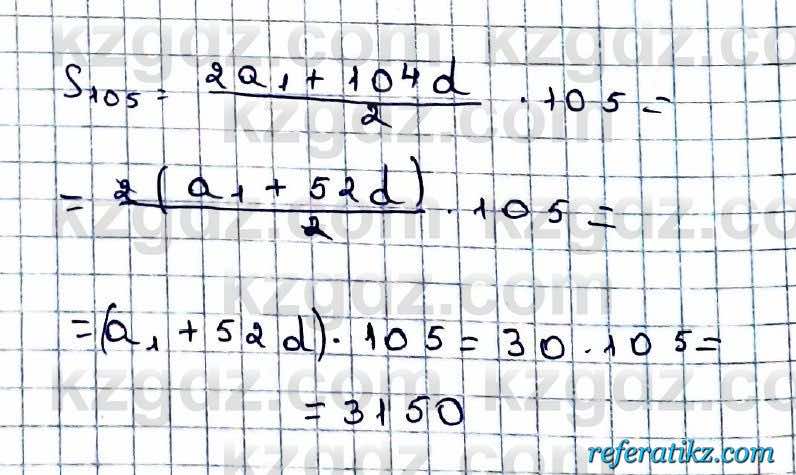 S₁₀₅ = (2a₁ + 104d)/2 · 105 =
= 2(a₁ + 52d)/2 · 105 =
= (a₁ + 52d) · 105 = 30 · 105 =
= 3150
kzgdz.com
referatikz.com